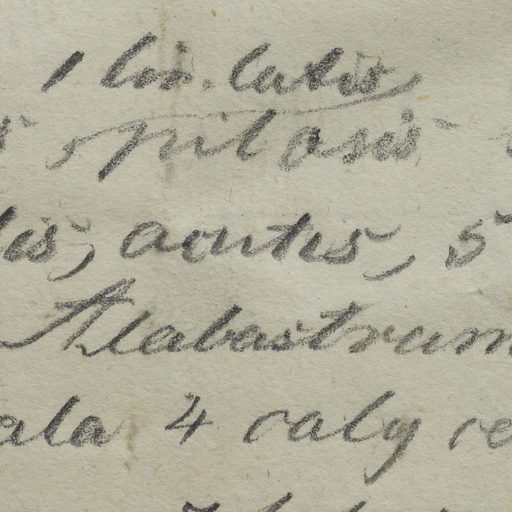 1 lin. latis,
s pilosis
lis, acutis, 5
Alabastrum
ala 4 caly